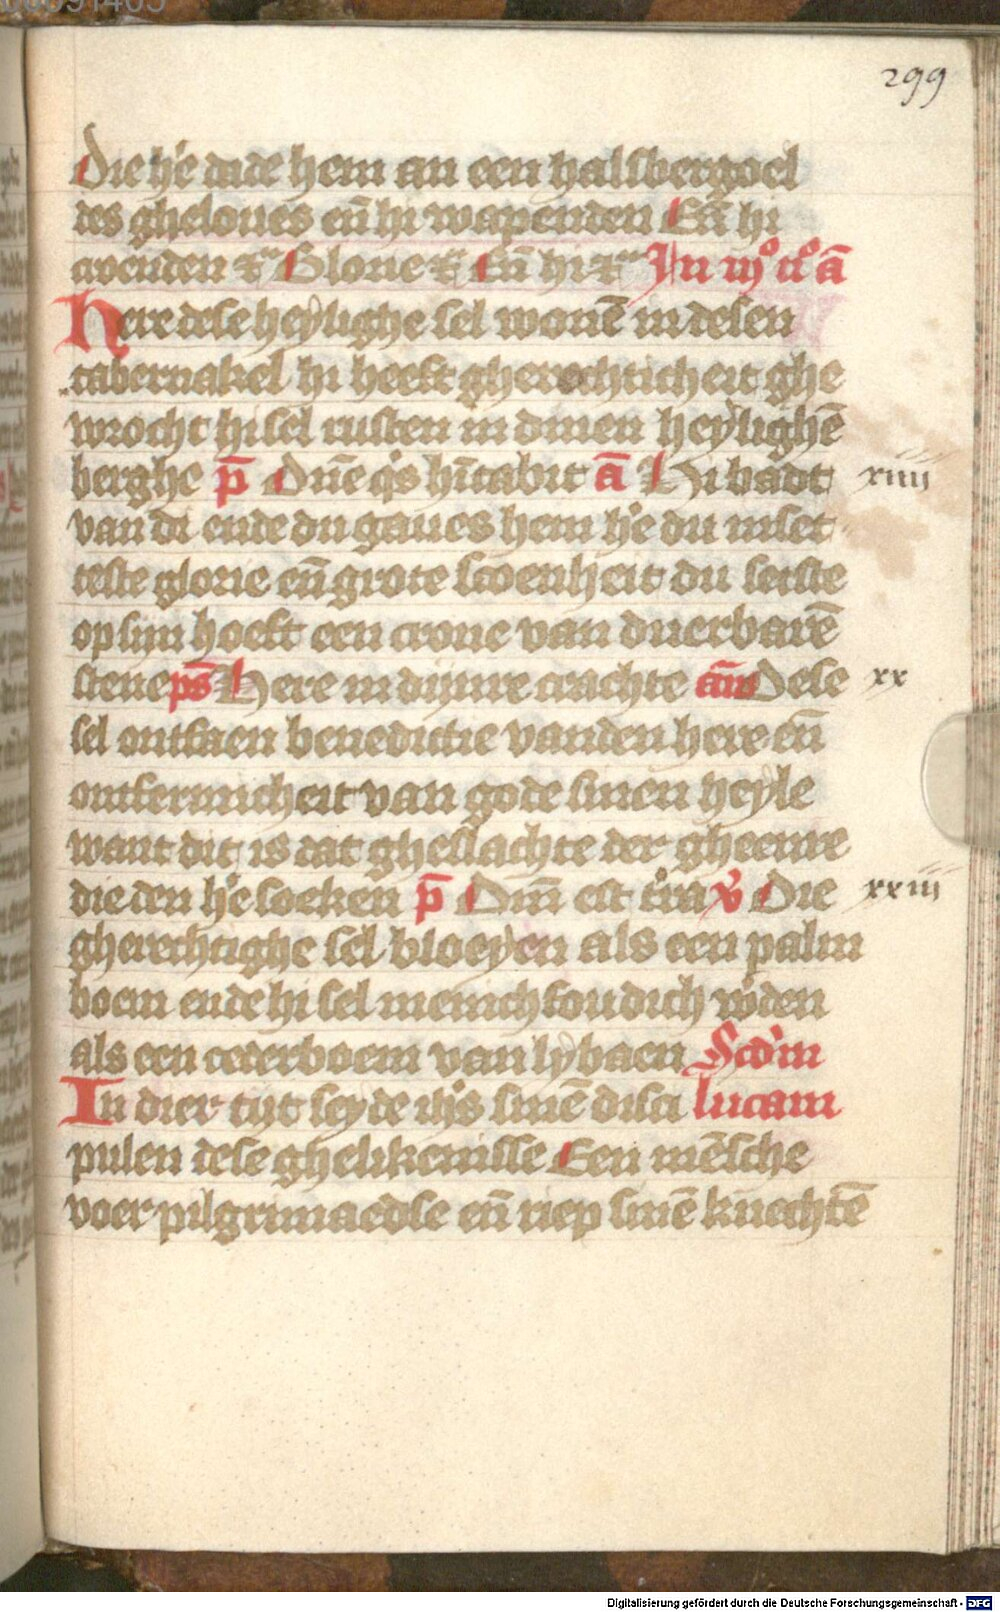 299
Die h'e dide hem an een halsbergoel
des gheloues en̄ hi wapenden En̄ hi
cyerden Glorie En̄ hi In iijº nº ā
Here dese heylighe sel wonē in desen
tabernakel hi heeft gherechticheit ghe
wrocht hi sel rusten in dinen heylighē
berghe p̄ Dn̄e q's hītabit ā Hi badt xiiii
van di ende du gaues hem h'e du inset
teste glorie en̄ grote scoenheit du setste
op sijn hoeft een crone van duerbarē
steneps̄ Here in dijnre crachte Dese xx
sel ontfaen benedictie vanden here en̄
ontfermicheit van gode sinen heyle
want dit is dat gheslachte der gheenre
die den h'e soeken p̄ Dn̄i est t'ra v' Die xxiii
gherechtighe sel bloeyen als een palm
boem ende hi sel menichfoudich w'den
als een cederboem van lybaen Scd'm
In dier tijt seyde ih's sinē disci lucam
pulen dese ghelikenisse Een mēsche
voer pilgrimaedse en̄ riep sinē knechtē
Digitalisierung gefördert durch die Deutsche Forschungsgemeinschaft - DFG